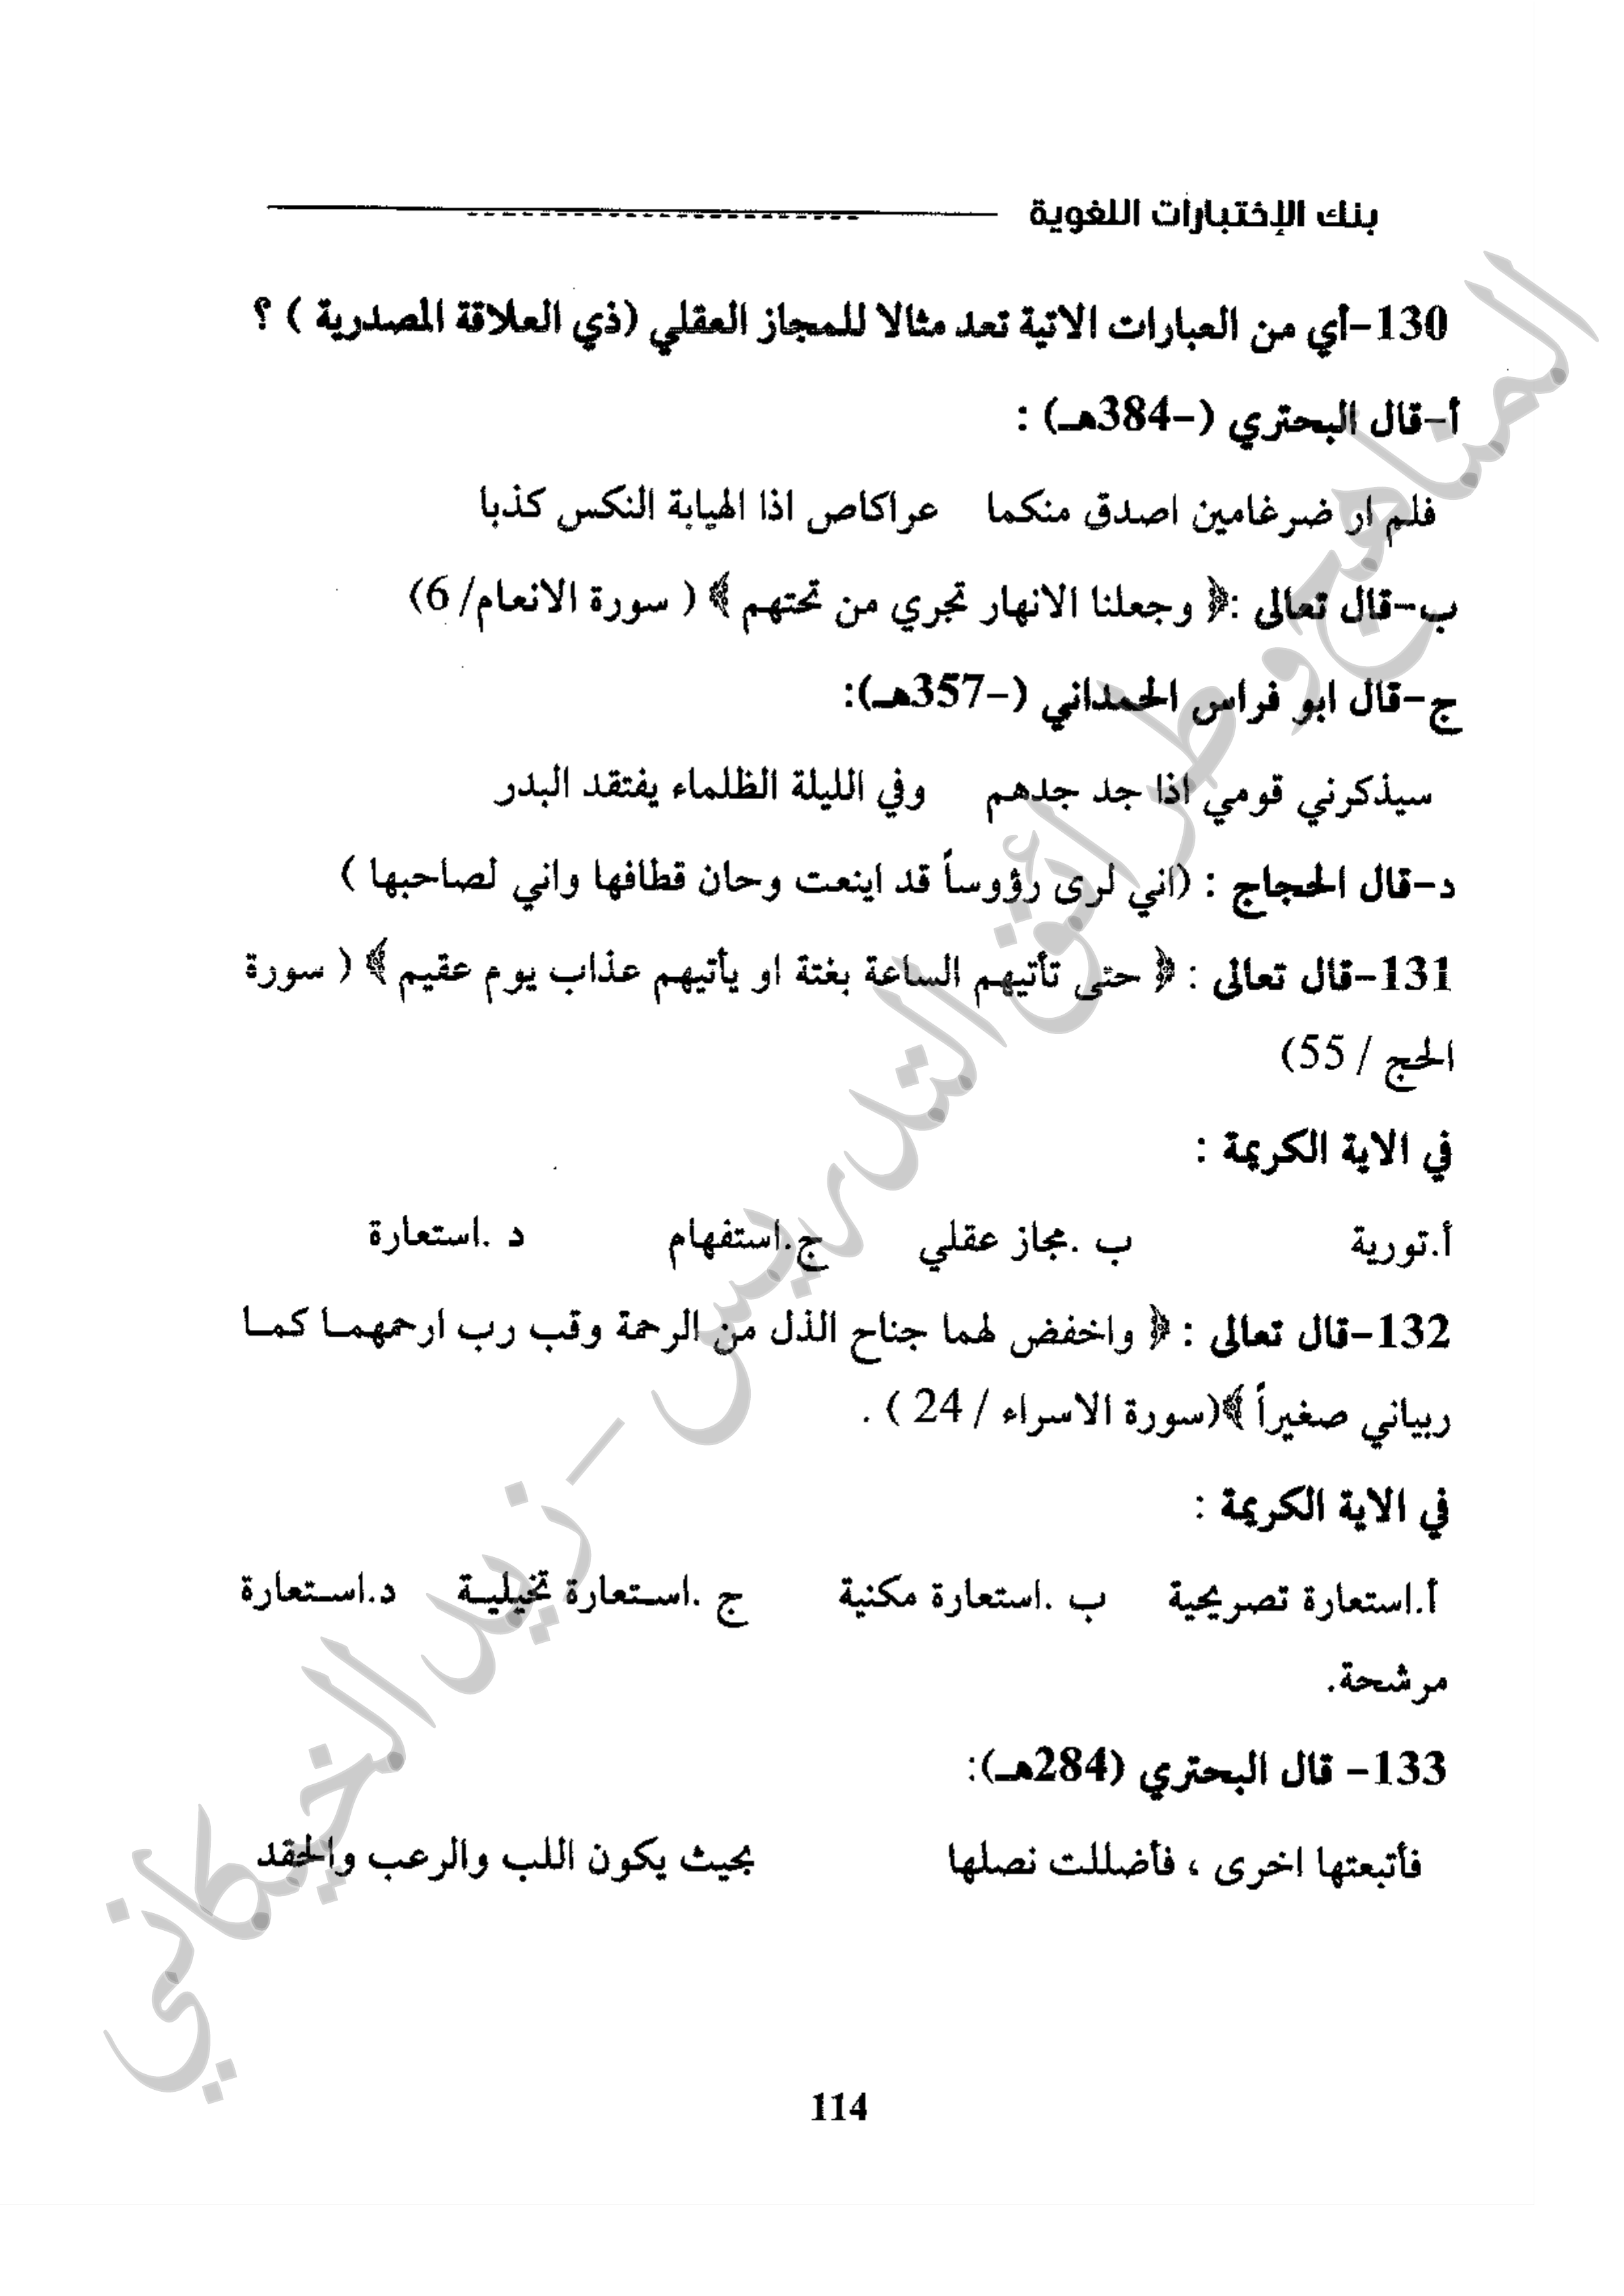 بنك الإختبارات اللغوية
130-أي من العبارات الاتية تعد مثالا للمجاز العقلي (ذي العلاقة المصدرية ) ؟
أ-قال البحتري (-384هـ) :
فلم ار ضرغامين اصدق منكما عراكاص اذا الهيابة النكس كذبا
ب-قال تعالى :﴿ وجعلنا الانهار تجري من تحتهم ﴾ ( سورة الانعام/ 6)
ج-قال ابو فراس الحمداني (-357هـ):
سيذكرني قومي اذا جد جدهم وفي الليلة الظلماء يفتقد البدر
د-قال الحجاج : (اني لرى رؤوساً قد اينعت وحان قطافها واني لصاحبها )
131-قال تعالى : ﴿ حتى تأتيهم الساعة بغتة او يأتيهم عذاب يوم عقيم ﴾ ( سورة
الحج / 55)
في الاية الكريمة :
أ.تورية ب .مجاز عقلي ج.استفهام د .استعارة
132-قال تعالى : ﴿ واخفض لهما جناح الذل من الرحمة وقب رب ارحمهما كما
ربياني صغيراً ﴾(سورة الاسراء / 24 ) .
في الاية الكريمة :
أ.استعارة تصريحية ب .استعارة مكنية ج .استعارة تخيلية د.استعارة
مرشحة.
133- قال البحتري (284هـ):
فأتبعتها اخرى ، فأضللت نصلها بحيث يكون اللب والرعب والحقد
114
المناهج وطرائق التدريس - زيد الخيكاني